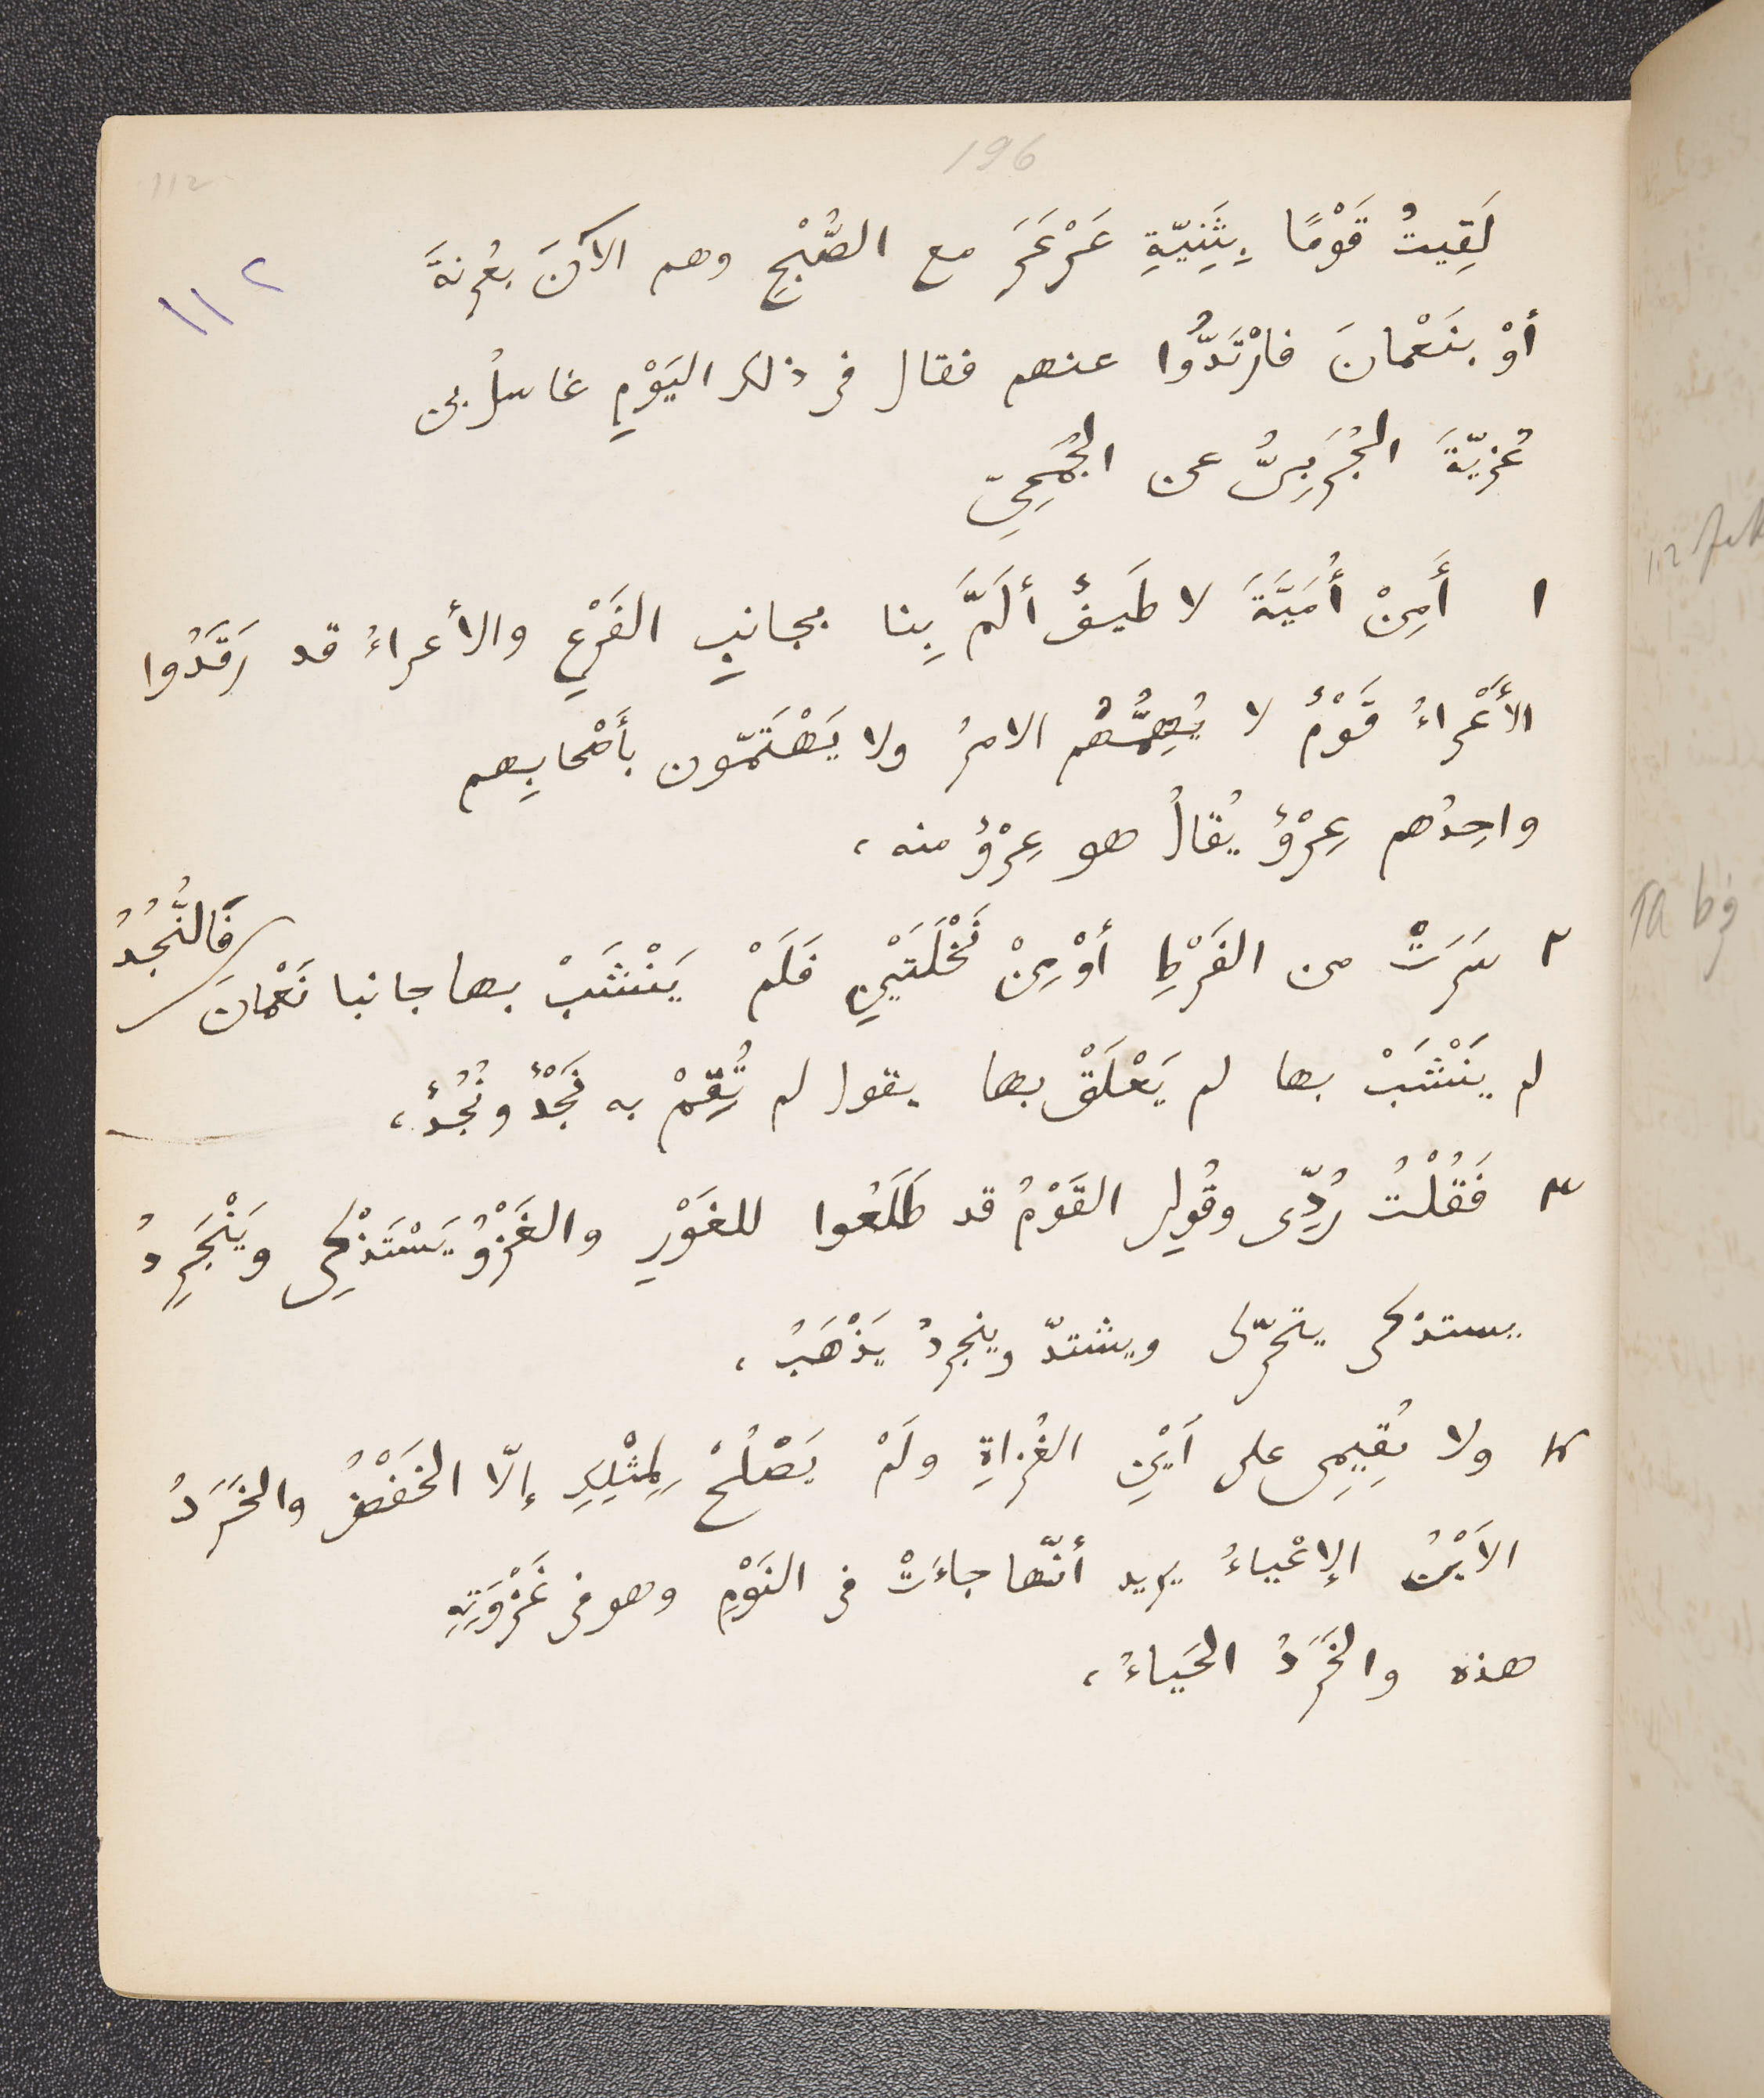 196
112
١١٢
لَقِيتُ قَوْمًا بِثَنِيّةِ عَرْعَرَ مع الصُّبْحِ وهم الآنَ بعُرنةَ
أوْ بنَعْمانَ فارْتَدُّوا عنهم فقال فى ذلك اليَوْمِ غاسلُ بن
غُزيّةَ الجُرَبِىُّ عن الجُمَحِىّ
١ أَمِنْ أُمَيَّةَ لا طَيفٌ ألَمَّ بِنا بجانبِ الفَرْعِ والأعراءُ قد رَقَدُوا
الأَعْراءُ قَوْمٌ لا يُهِمُّهُم الامرُ ولا يَهْتَمّون بأَصْحابِهم
واحِدُهم عِرْوٌ يُقالُ هو عِرْوٌ منه،
٢ سَرَتْ من الفَرْطِ أوْ مِنْ نَخْلَتَيْنِ فَلَمْ يَنْشَبْ بها جانبا نَعْمانَ فَالنُّجُدُ
لم يَنْشَبْ بها لم يَعْلَقْ بها يقول لم تُقِمْ به نَجْدٌ ونُجُدٌ،
٣ فَقُلْتُ رُدِّى وقُولِى القَوْمُ قد طَلَعُوا للغَوْرِ والغَزْوُ يَسْتَذْكِى ويَنْجَرِدُ
يستذكى يتحرّك ويشتدّ وينجردُ يَذْهَبُ،
٤ ولا تُقِيمِى على أَيْنِ الغُزاةِ ولَمْ يَصْلُحْ لِمِثْلِكِ إلّا الخَفْضُ والخَرَدُ
الأَيْنُ الإعْياءُ يريد أنّها جاءَتْ فى النَوْمِ وهو فى غَزْوَتِهِ
هذه والخَرَدُ الحَياءُ،